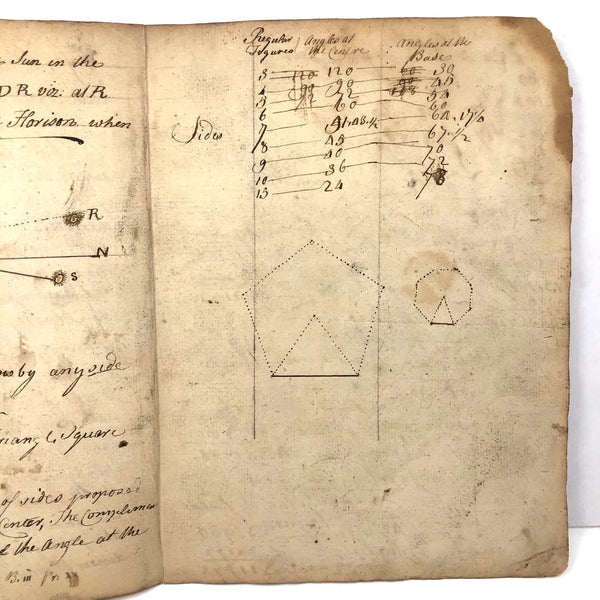 Sun in the
D R viz. at R
Horison when
R
N
S
by any side
riangle, Square
of sides proposed
Center, The Complimen
the Angle at the
B. iii Pr.
Regular Figures
Angles at the Centre
Angles at the Base
Sides
3 120 30
4 90 45
5 72 54
6 60 60
7 51,48.½ 64.17¼
8 45 67.½
9 40 70
10 36 72
15 24 78